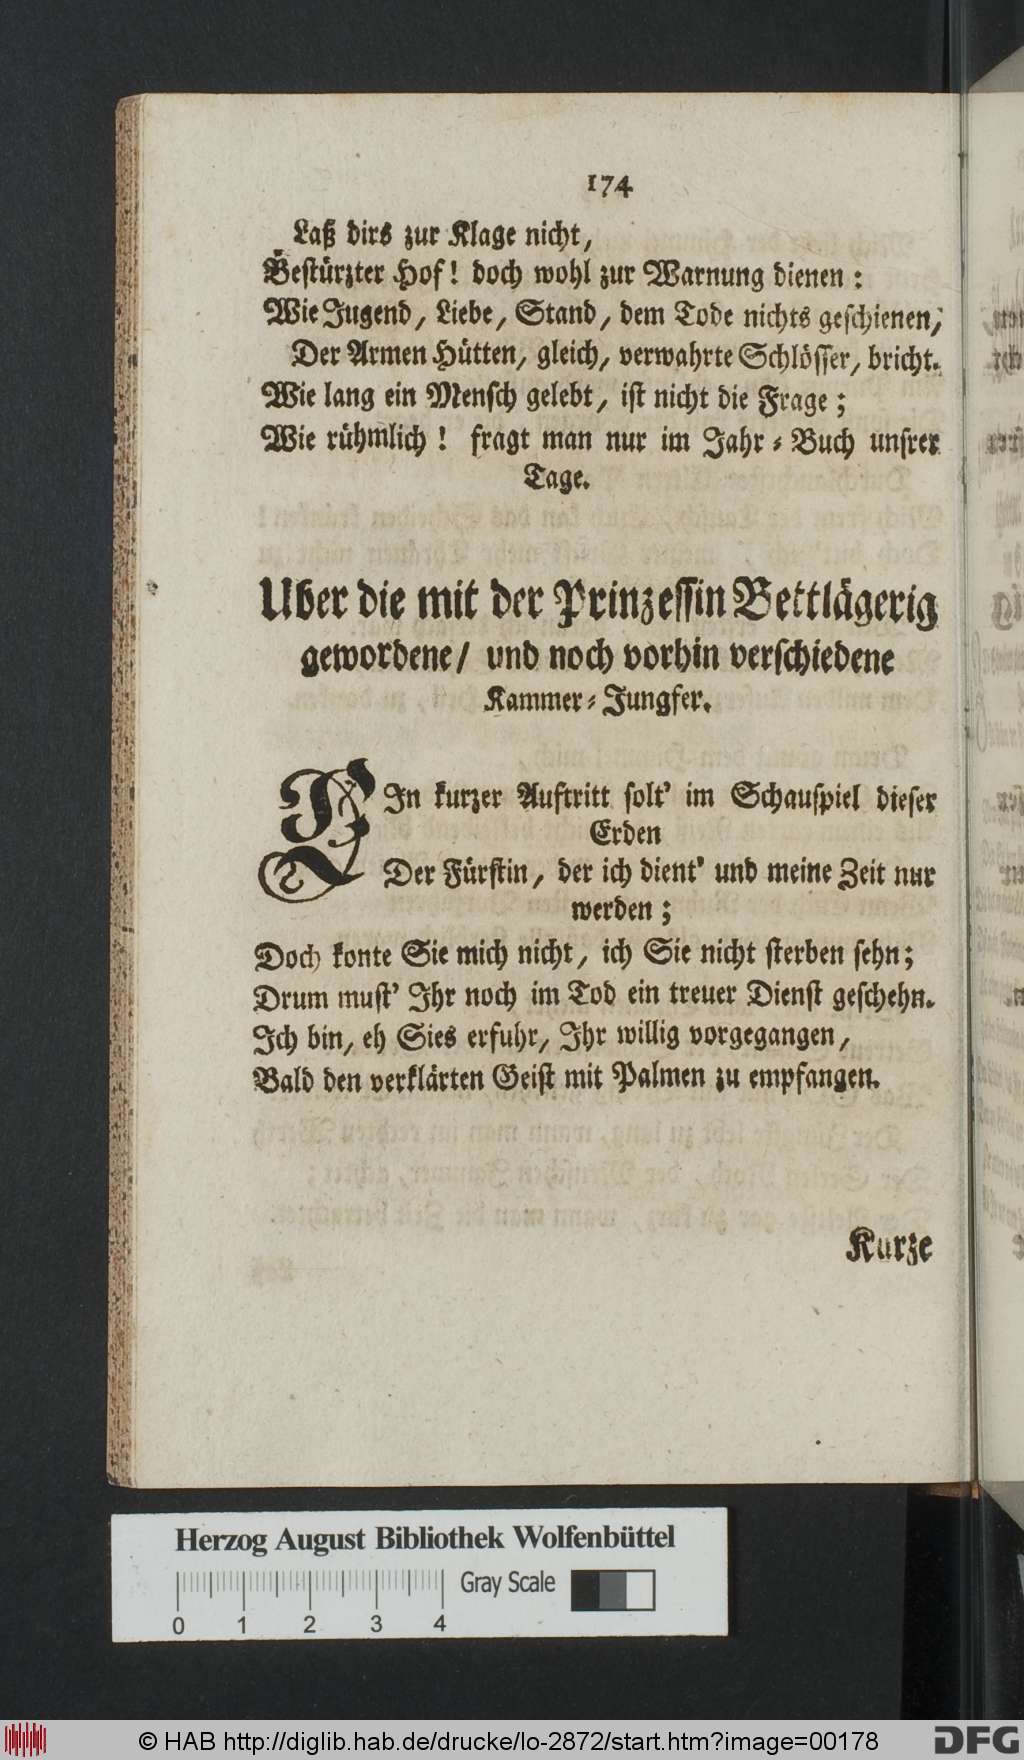 174
Laß dirs zur Klage nicht,
Bestürzter Hof! doch wohl zur Warnung dienen:
Wie Jugend, Liebe, Stand, dem Tode nichts geschienen,
Der Armen Hütten, gleich, verwahrte Schlösser, bricht.
Wie lang ein Mensch gelebt, ist nicht die Frage;
Wie rühmlich! fragt man nur im Jahr-Buch unsrer
Tage.
Uber die mit der Prinzessin Bettlägerig
gewordene/ und noch vorhin verschiedene
Kammer-Jungfer.
EIn kurzer Auftritt solt' im Schauspiel dieser
Erden
Der Fürstin, der ich dient' und meine Zeit nur
werden;
Doch konte Sie mich nicht, ich Sie nicht sterben sehn;
Drum must' Ihr noch im Tod ein treuer Dienst geschehn.
Ich bin, eh Sies erfuhr, Ihr willig vorgegangen,
Bald den verklärten Geist mit Palmen zu empfangen.
Kurze
Herzog August Bibliothek Wolfenbüttel
Gray Scale
0 1 2 3 4
© HAB http://diglib.hab.de/drucke/lo-2872/start.htm?image=00178
DFG